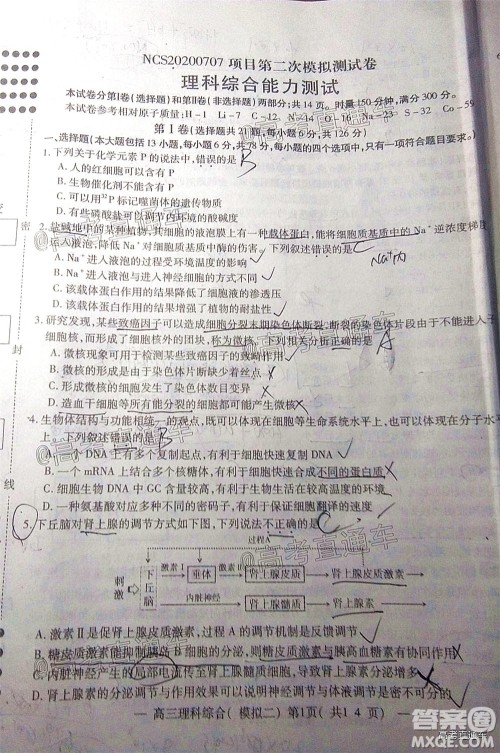 NCS20200707项目第二次模拟测试卷
理科综合能力测试
本试卷分第Ⅰ卷(选择题)和第Ⅱ卷(非选择题)两部分;共14页。时量150分钟,满分300分。
本试卷参考相对原子质量:H-1 Li-7 C-12 N-14 O-16 Na-23 S-32 Co-59
第Ⅰ卷(选择题共21题,每小题6分,共126分)
一、选择题(本大题包括13小题,每小题6分,共78分,每小题的四个选项中,只有一项符合题目要求。)
1.下列关于化学元素P的说法中,错误的是 B
A.人的红细胞可以含有P
B.生物催化剂不能含有P
C.可以用³²P标记噬菌体的遗传物质
D.有些磷酸盐可以调节内环境的酸碱度
2.盐碱地中的某种植物,其细胞的液泡膜上有一种载体蛋白,能将细胞质基质中的Na⁺逆浓度梯度
运入液泡,降低Na⁺对细胞质基质中酶的伤害。下列叙述错误的是 C
A.Na⁺进入液泡的过程受环境温度的影响
B.Na⁺进入液泡与进入神经细胞的方式不同
C.该载体蛋白作用的结果降低了细胞液的渗透压
D.该载体蛋白作用的结果增强了植物的耐盐性
3.研究发现,某些致癌因子可以造成细胞分裂末期染色体断裂,断裂的染色体片段由于不能进入子
细胞核,而形成了细胞核外的团块,称为微核。下列相关分析正确的是 A
A.微核现象可用于检测某些致癌因子的致畸作用
B.微核形成的原因是由于染色体片断缺少着丝点
C.形成微核的细胞发生了染色体数目变异
D.造血干细胞等所有能分裂的细胞都可能产生微核
4.生物体结构与功能相统一的观点,既可以体现在细胞等生命系统水平上,也可以体现在分子水平
上。下列叙述错误的是 B
A.一个DNA上有多个复制起点,有利于细胞快速复制DNA
B.一个mRNA上结合多个核糖体,有利于细胞快速合成不同的蛋白质
C.细胞生物DNA中GC含量较高,有利于细胞生活在较高温度的环境
D.一种氨基酸对应多种不同的密码子,有利于细胞保证翻译的速度
5.下丘脑对肾上腺的调节方式如下图,下列说法不正确的是 C
过程A
刺激 下丘脑 激素Ⅰ 垂体 激素Ⅱ 肾上腺皮质 肾上腺皮质激素
内脏神经 肾上腺髓质 肾上腺素
A.激素Ⅱ是促肾上腺皮质激素,过程A的调节机制是反馈调节
B.糖皮质激素能抑制胰岛B细胞的分泌,则糖皮质激素与胰高血糖素有协同作用
C.内脏神经产生的局部电流传至肾上腺髓质细胞,导致肾上腺素分泌增多
D.从肾上腺的分泌活动可以看出神经调节与体液调节是密不可分的
高三理科综合(模拟二)第1页(共14页)
密
封
线
@高考直通车
答案圈
MXQE.COM